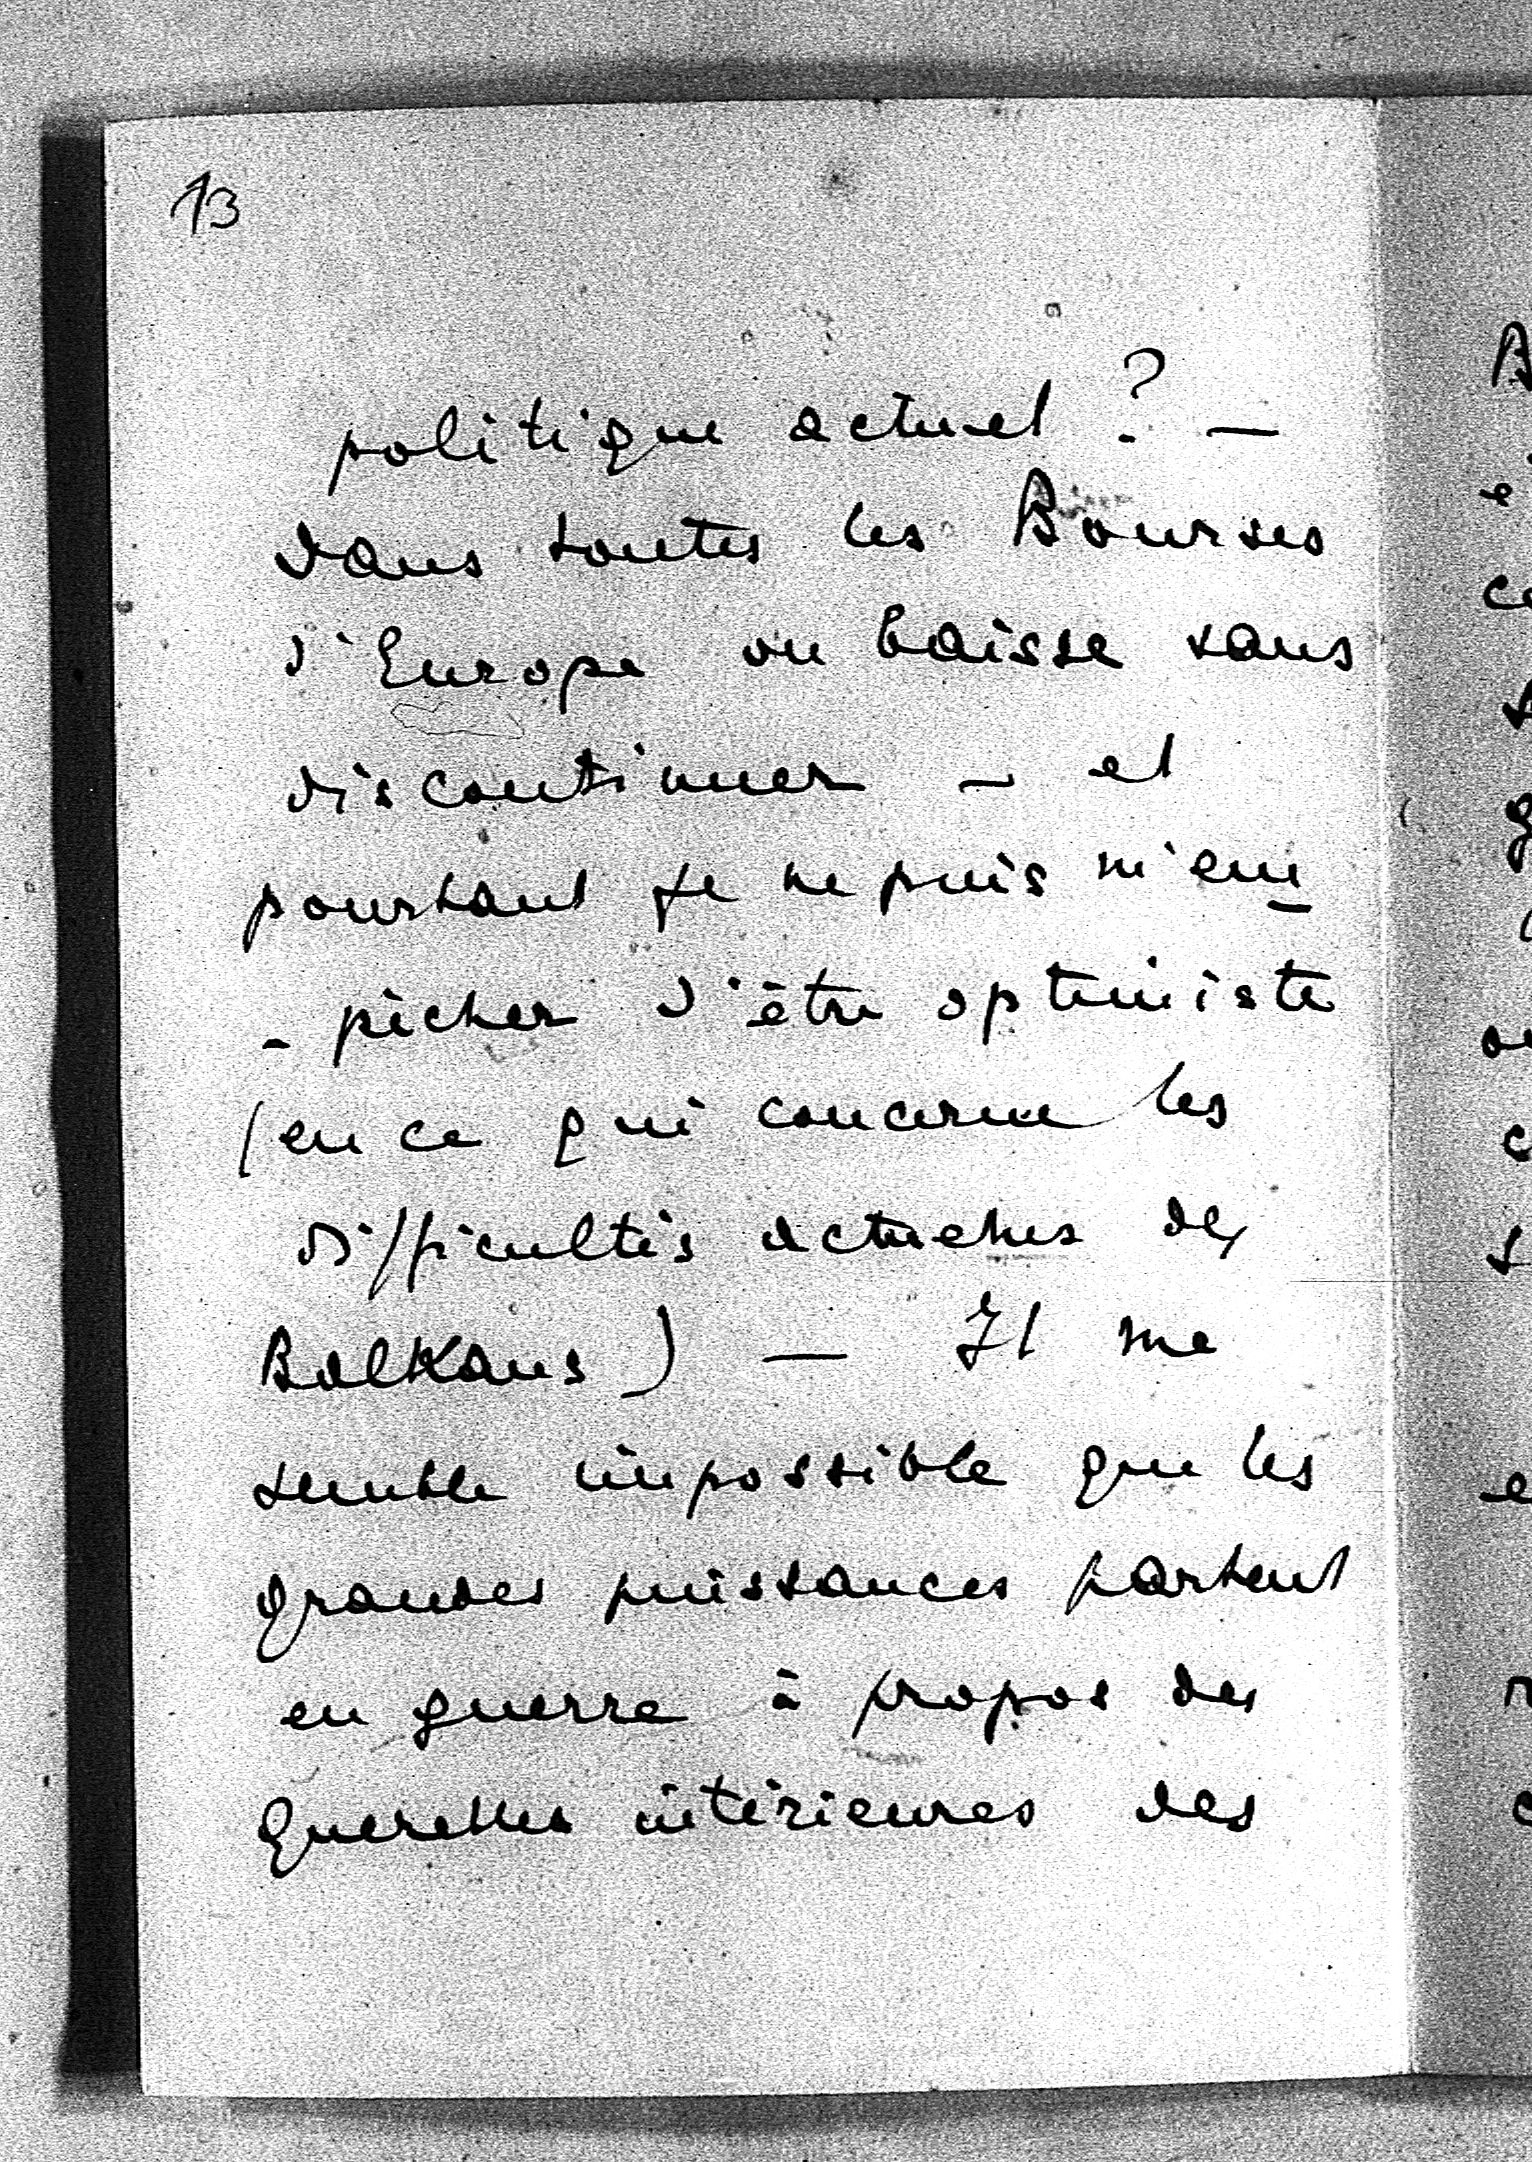 13
politique actuel ? —
dans toutes les Bourses
d'Europe on baisse sans
discontinuer — et
pourtant je ne puis m'em
- pêcher d'être optimiste
(en ce qui concerne les
difficultés actuelles des
Balkans) — Il me
semble impossible que les
grandes puissances partent
en guerre à propos des
querelles intérieures des